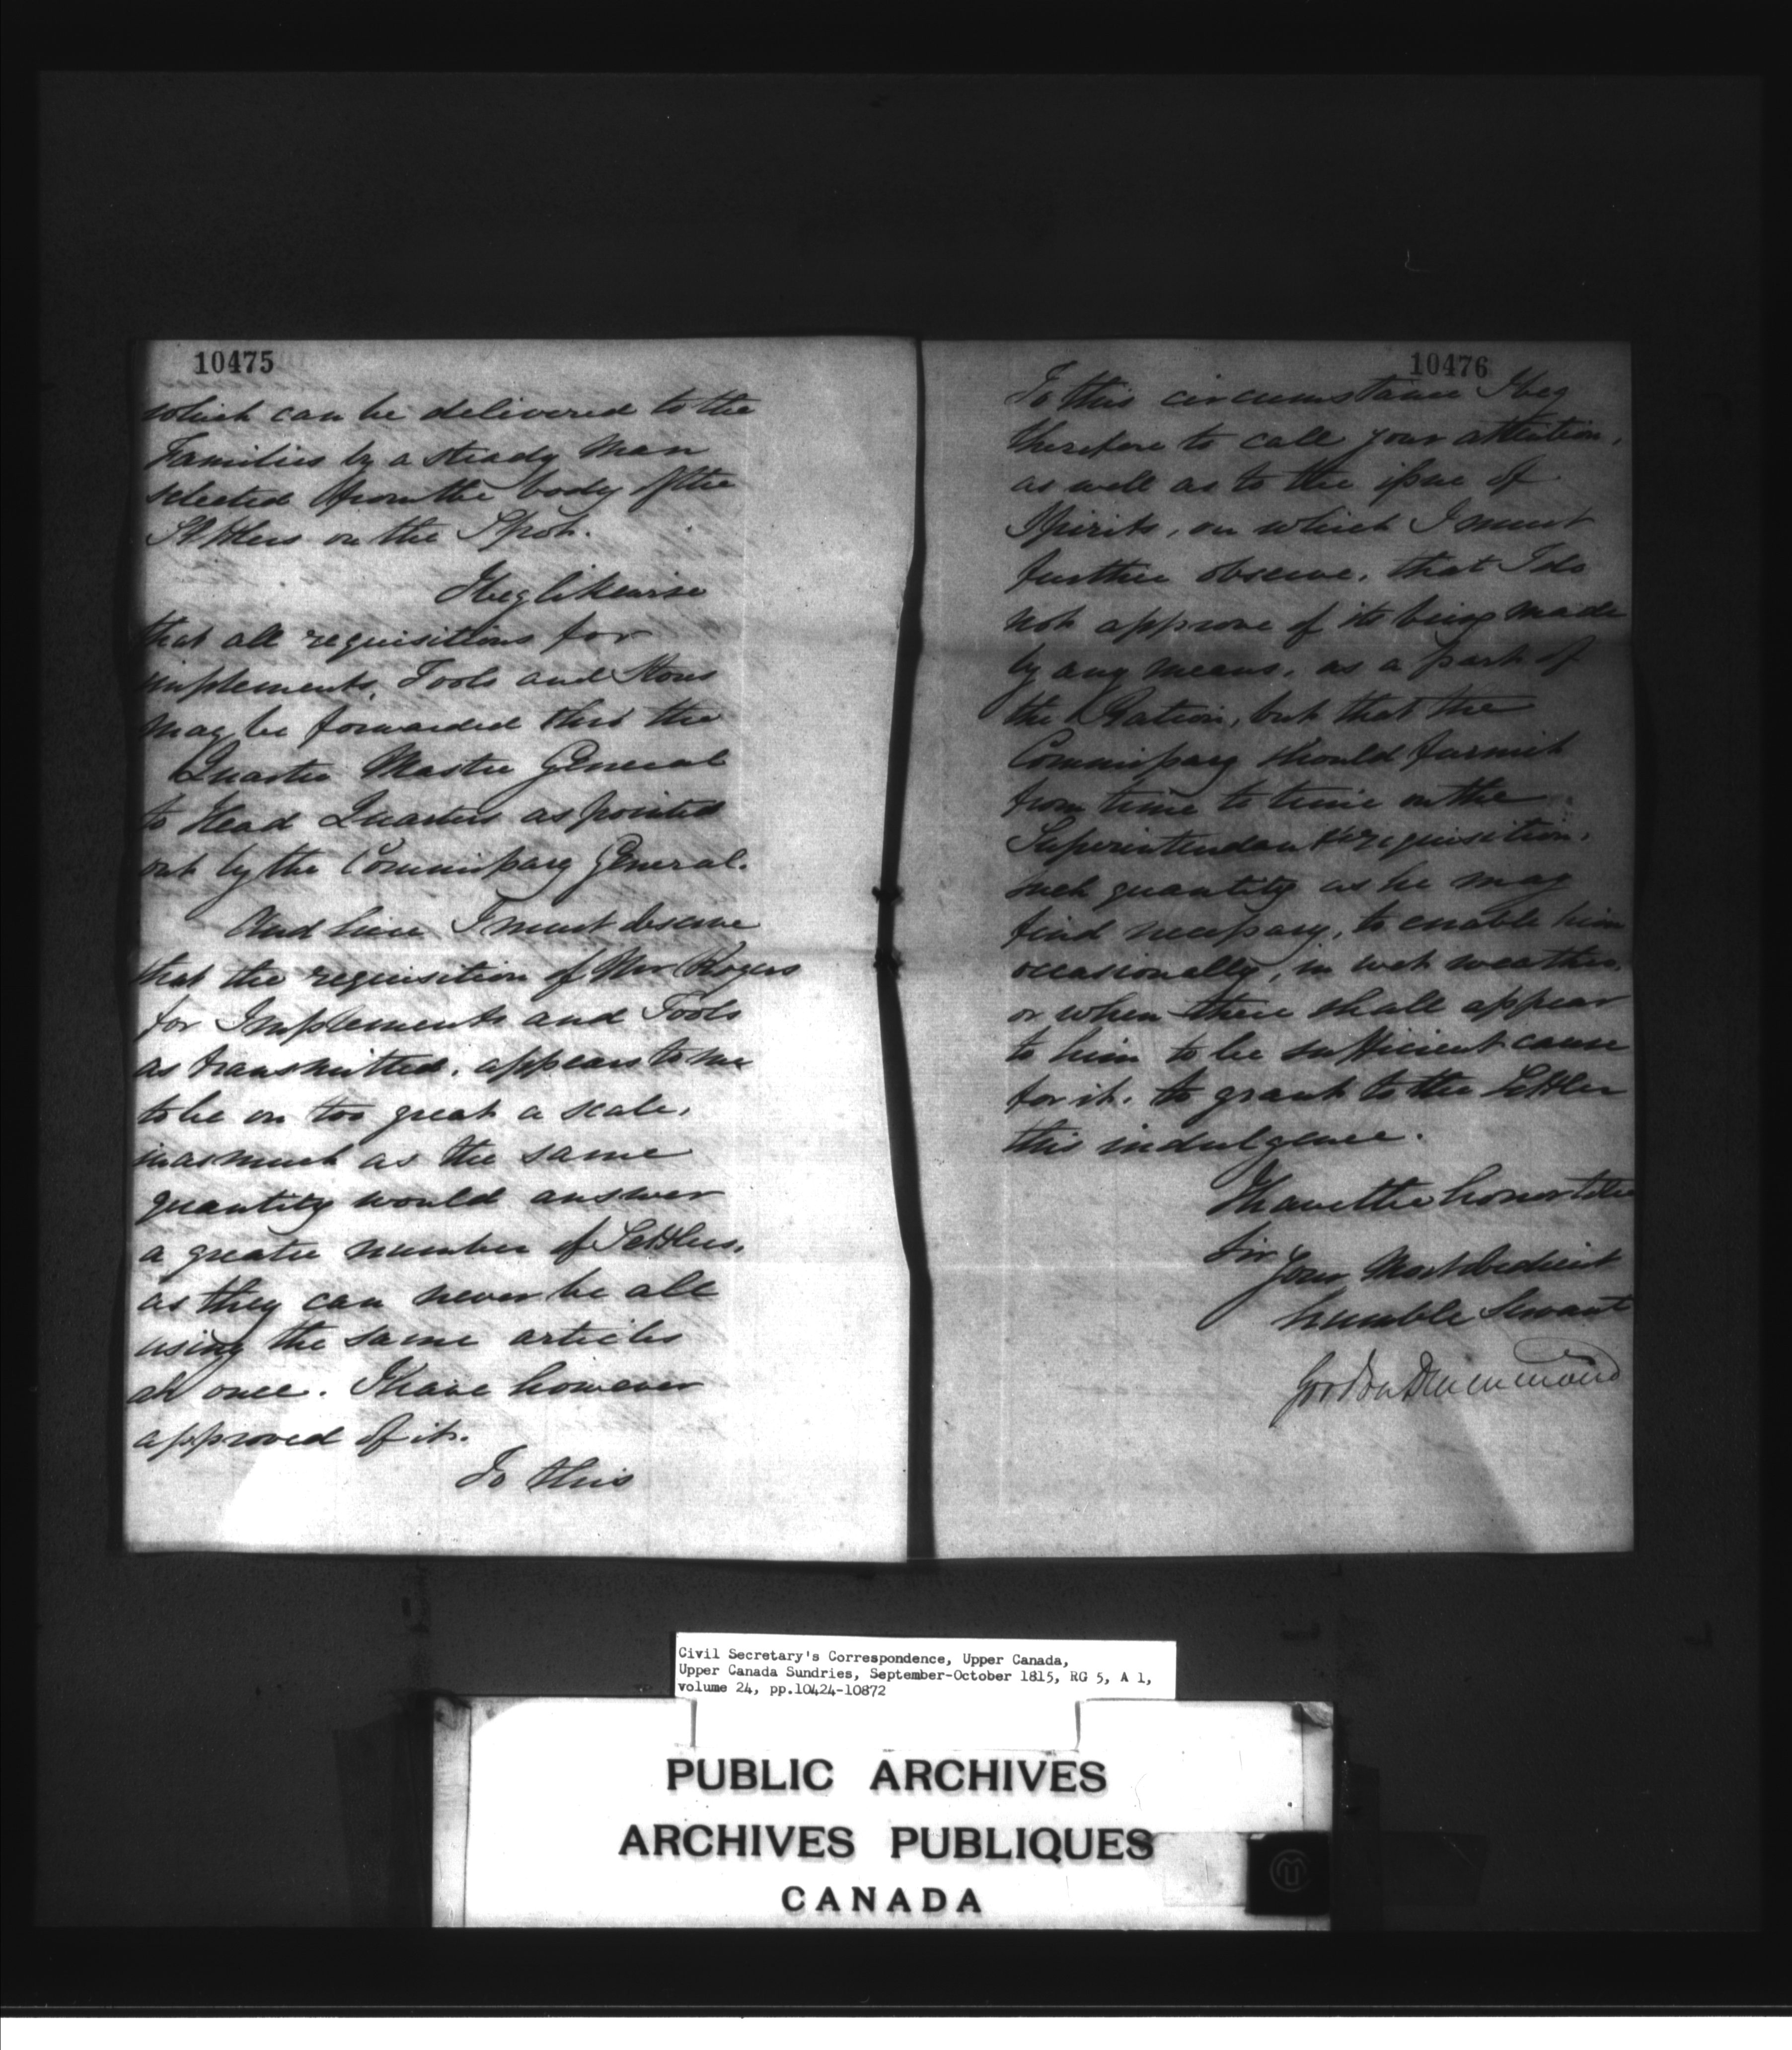 10475
which can be delivered to the
Families by a steady Man
selected from the body of the
Settlers on the Spot.
I beg likewise
that all requisitions for
implements, Tools and Stores
may be forwarded thro' the
Quarter Master General
to Head Quarters as pointed
out by the Commissary General.
And here I must observe
that the requisition of Mr. Rogers
for Implements and Tools
as transmitted, appears to me
to be on too great a scale,
inasmuch as the same
quantity would answer
a greater number of Settlers,
as they can never be all
using the same articles
at once. I have however
approved of it.
To this
10476
To this circumstance I beg
therefore to call your attention,
as well as to the issue of
Spirits, on which I must
further observe, that I do
not approve of its being made
by any means, as a part of
the Ration, but that the
Commissary should furnish
from time to time on the
Superintendants requisition,
such quantity as he may
find necessary, to enable him
occasionally, in wet weather,
or when there shall appear
to him to be sufficient cause
for it, to grant to the Settler
this indulgence.
I have the honor to be
Sir
Your Most Obedient
humble Servant
Gordon Drummond
Civil Secretary's Correspondence, Upper Canada,
Upper Canada Sundries, September-October 1815, RG 5, A 1,
volume 24, pp.10424-10872
PUBLIC ARCHIVES
ARCHIVES PUBLIQUES
CANADA